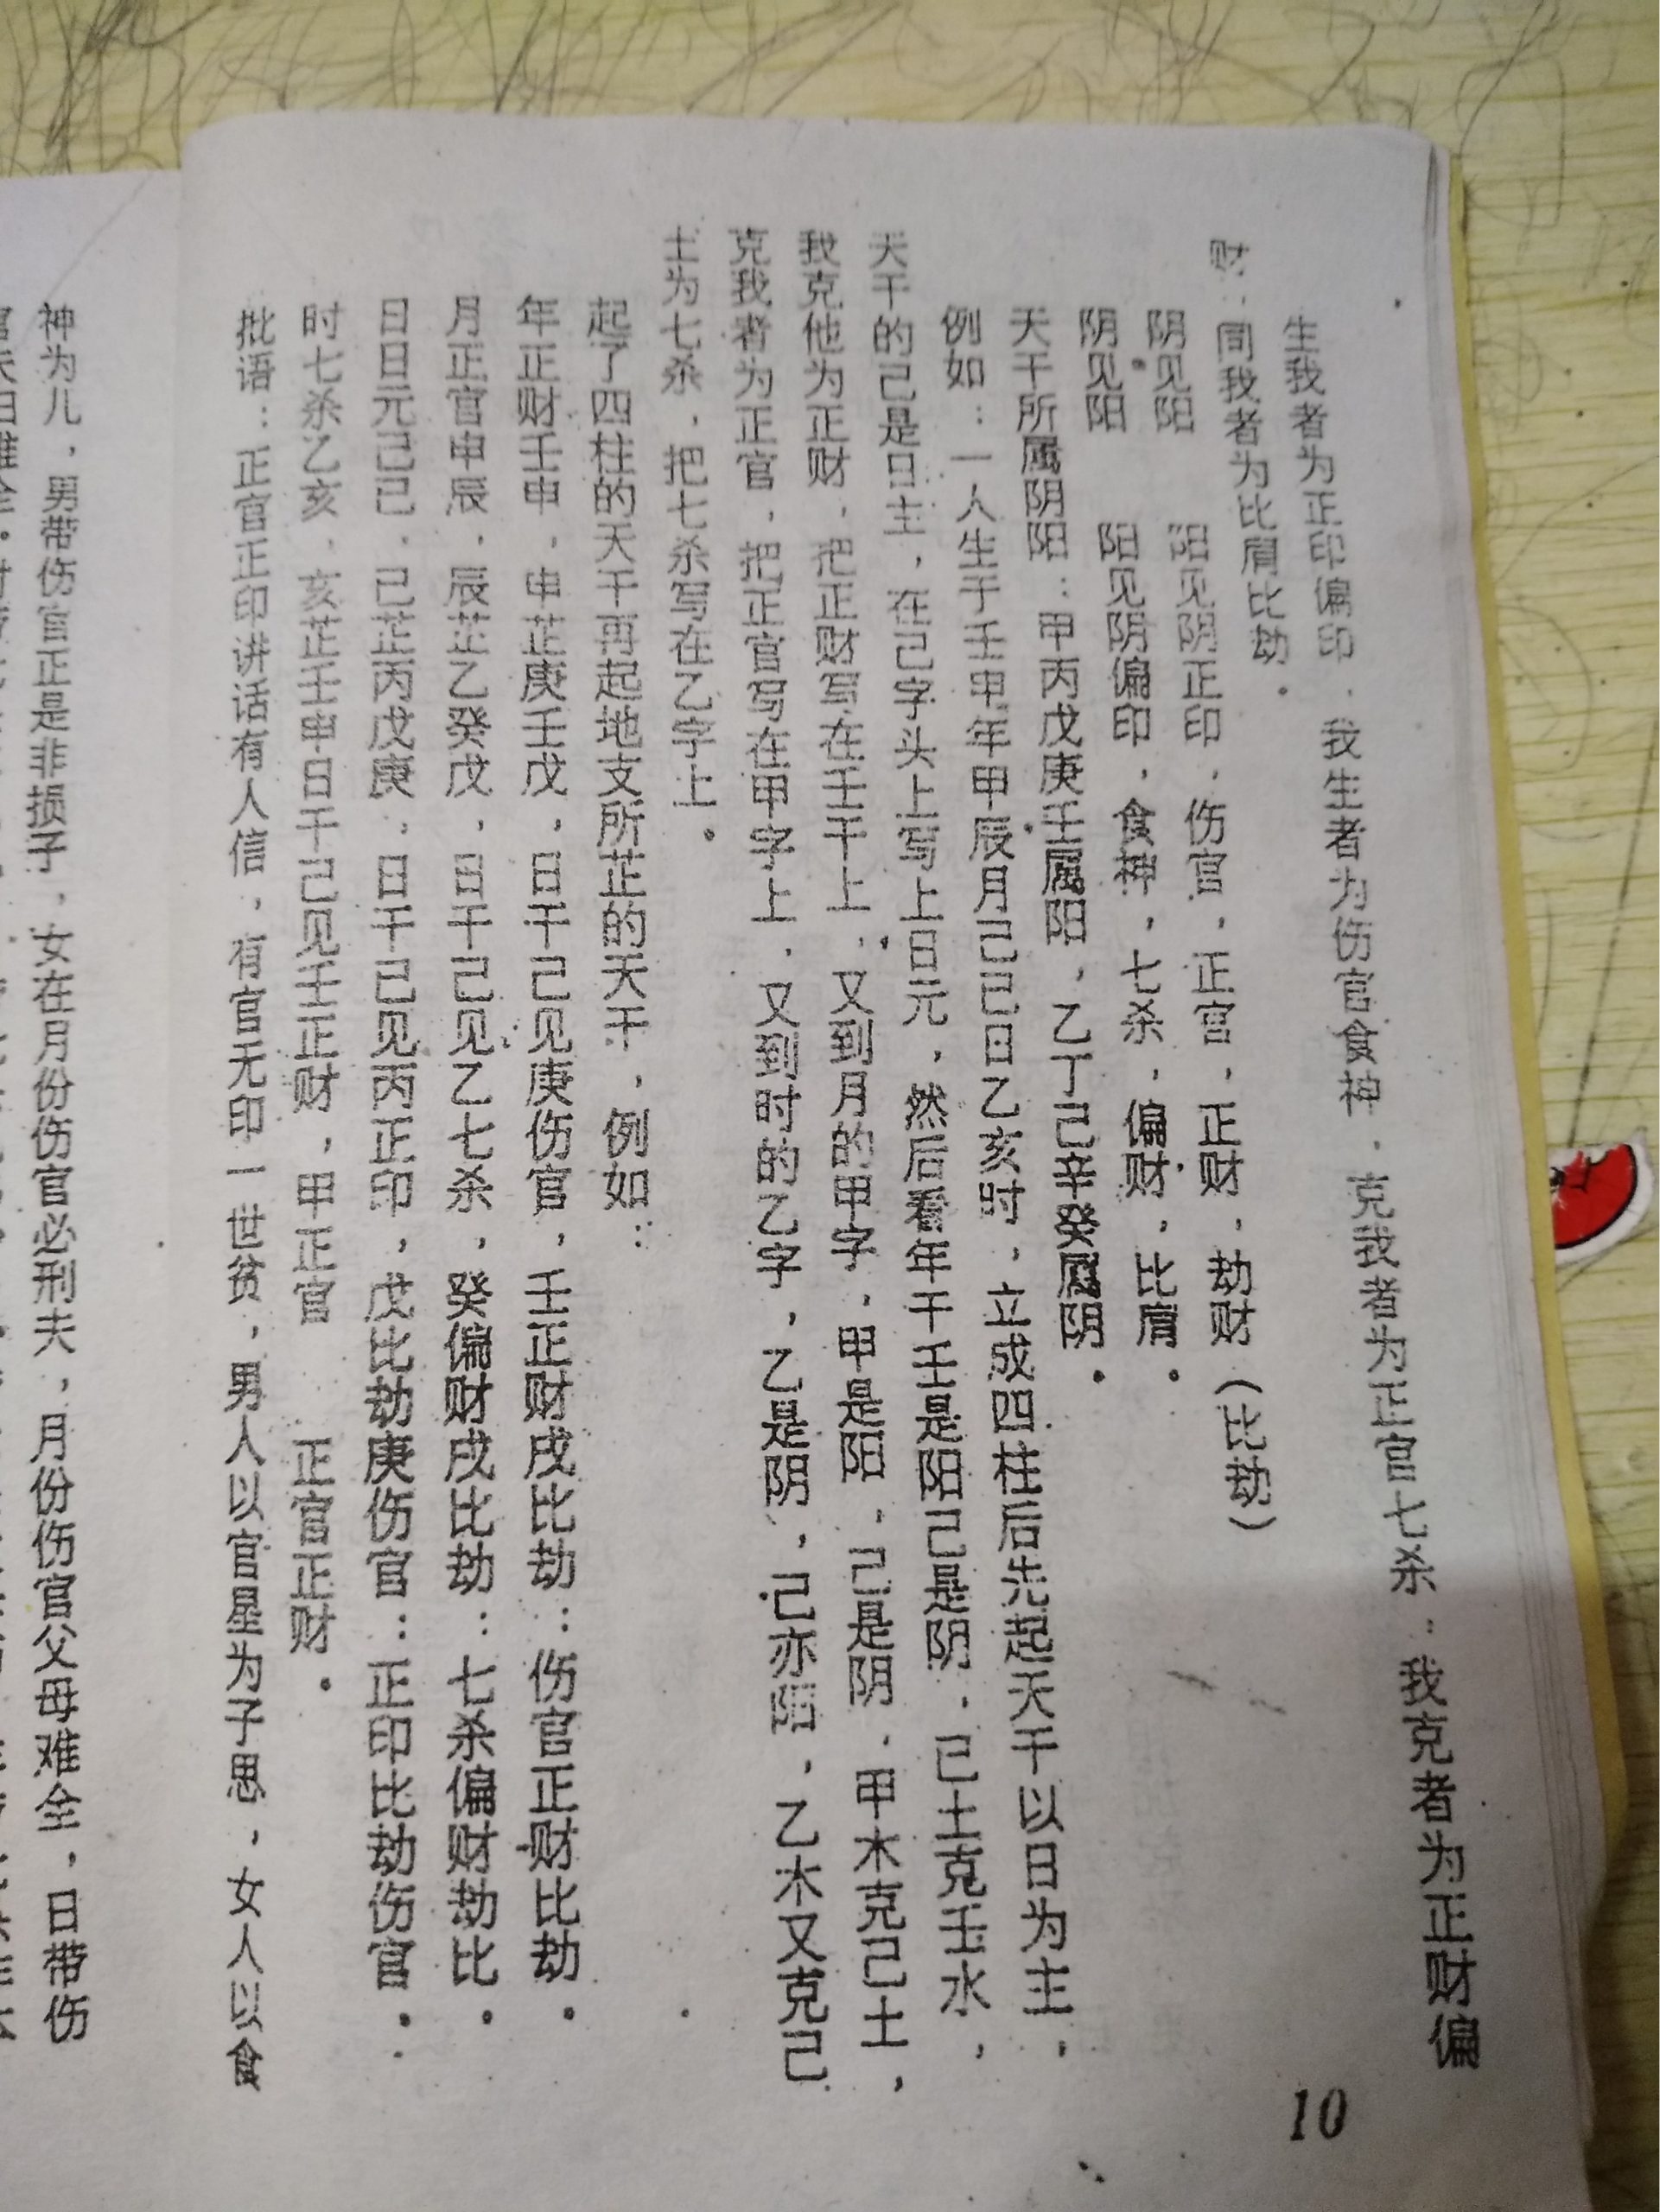 生我者为正印偏印．我生者为伤官食神．克我者为正官七杀：我克者为正财偏
财：同我者为比肩比劫．
阴见阳 阳见阴正印，伤官，正官，正财，劫财（比劫）
阴见阳 阳见阴偏印，食神，七杀，偏财，比肩．
天干所属阴阳：甲丙戊庚壬属阳，乙丁己辛癸属阴．
例如：一人生于壬申年甲辰月己巳日乙亥时，立成四柱后先起天干以日为主，
天干的己是日主，在己字头上写上日元，然后看年干壬是阳己是阴．己土克壬水，
我克他为正财．把正财写在壬干上．又到月的甲字，甲是阳．己是阴．甲木克己土，
克我者为正官．把正官写在甲字上．又到时的乙字，乙是阴，己亦阳，乙木又克己
土为七杀，把七杀写在乙字上．
起了四柱的天干再起地支所芷的天干，例如：
年正财壬申，申芷庚壬戊，日干己见庚伤官，壬正财戊比劫：伤官正财比劫．
月正官甲辰，辰芷乙癸戊，日干己见乙七杀，癸偏财戊比劫：七杀偏财劫比．
日日元己巳．己芷丙戊庚．日干己见丙正印，戊比劫庚伤官：正印比劫伤官．
时七杀乙亥．亥芷壬甲日干己见壬正财，甲正官 正官正财．
批语：正官正印讲话有人信，有官无印一世贫，男人以官星为子思，女人以食
神为儿，男带伤官正是非损子．女在月份伤官必刑夫，月份伤官父母难全，日带伤
10